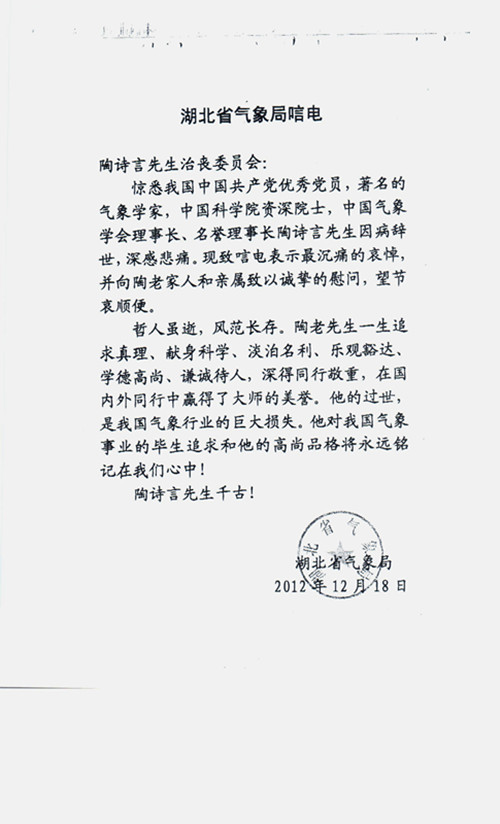 湖北省气象局唁电
陶诗言先生治丧委员会：
惊悉我国中国共产党优秀党员，著名的
气象学家，中国科学院资深院士，中国气象
学会理事长、名誉理事长陶诗言先生因病辞
世，深感悲痛。现致唁电表示最沉痛的哀悼，
并向陶老家人和亲属致以诚挚的慰问，望节
哀顺便。
哲人虽逝，风范长存。陶老先生一生追
求真理、献身科学、淡泊名利、乐观豁达、
学德高尚、谦诚待人，深得同行敬重，在国
内外同行中赢得了大师的美誉。他的过世，
是我国气象行业的巨大损失。他对我国气象
事业的毕生追求和他的高尚品格将永远铭
记在我们心中！
陶诗言先生千古！
湖北省气象局
湖北省气象局
2012 年 12 月 18 日